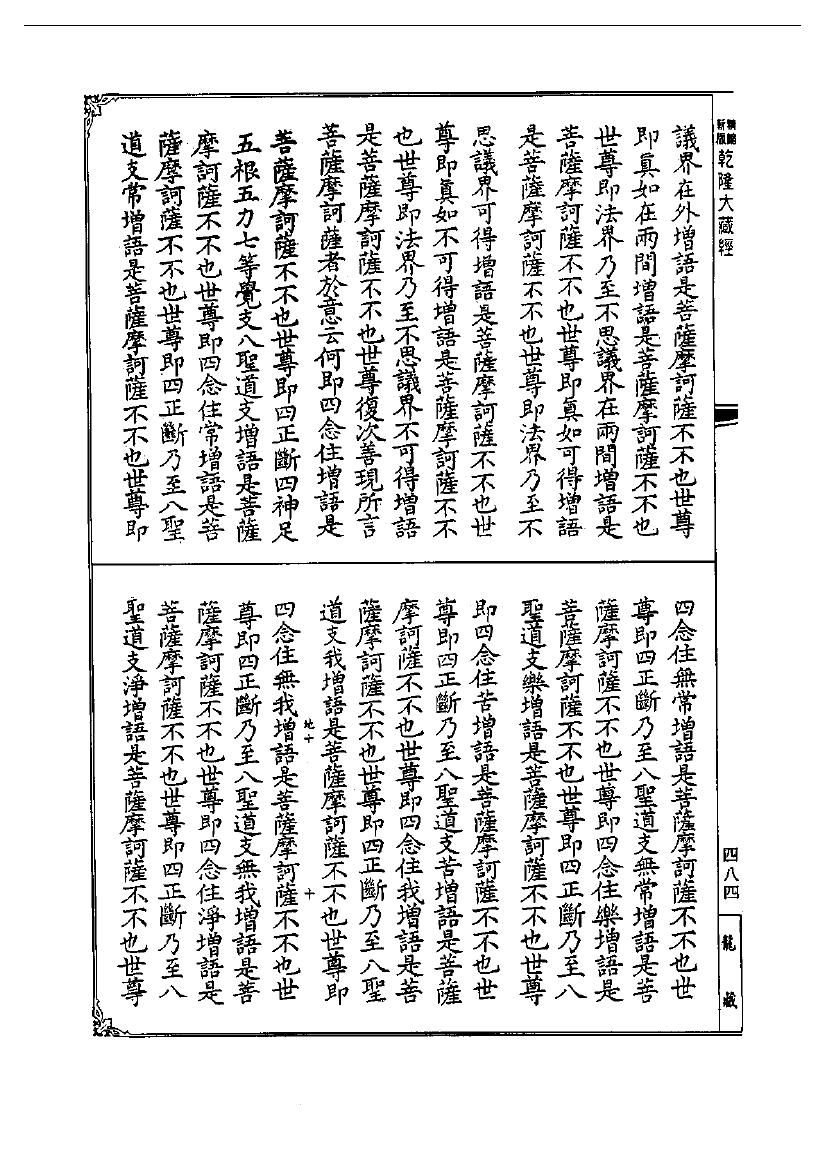 新編縮版 乾隆大藏經
議界在外增語是菩薩摩訶薩不不也世尊
即真如在兩間增語是菩薩摩訶薩不不也
世尊即法界乃至不思議界在兩間增語是
菩薩摩訶薩不不也世尊即真如可得增語
是菩薩摩訶薩不不也世尊即法界乃至不
思議界可得增語是菩薩摩訶薩不不也世
尊即真如不可得增語是菩薩摩訶薩不不
也世尊即法界乃至不思議界不可得增語
是菩薩摩訶薩不不也世尊復次善現所言
菩薩摩訶薩者於意云何即四念住增語是
菩薩摩訶薩不不也世尊即四正斷四神足
五根五力七等覺支八聖道支增語是菩薩
摩訶薩不不也世尊即四念住常增語是菩
薩摩訶薩不不也世尊即四正斷乃至八聖
道支常增語是菩薩摩訶薩不不也世尊即
四念住無常增語是菩薩摩訶薩不不也世
尊即四正斷乃至八聖道支無常增語是菩
薩摩訶薩不不也世尊即四念住樂增語是
菩薩摩訶薩不不也世尊即四正斷乃至八
聖道支樂增語是菩薩摩訶薩不不也世尊
即四念住苦增語是菩薩摩訶薩不不也世
尊即四正斷乃至八聖道支苦增語是菩薩
摩訶薩不不也世尊即四念住我增語是菩
薩摩訶薩不不也世尊即四正斷乃至八聖
道支我增語是菩薩摩訶薩不不也世尊即
地十 十
四念住無我增語是菩薩摩訶薩不不也世
尊即四正斷乃至八聖道支無我增語是菩
薩摩訶薩不不也世尊即四念住淨增語是
菩薩摩訶薩不不也世尊即四正斷乃至八
聖道支淨增語是菩薩摩訶薩不不也世尊
四八四
龍藏